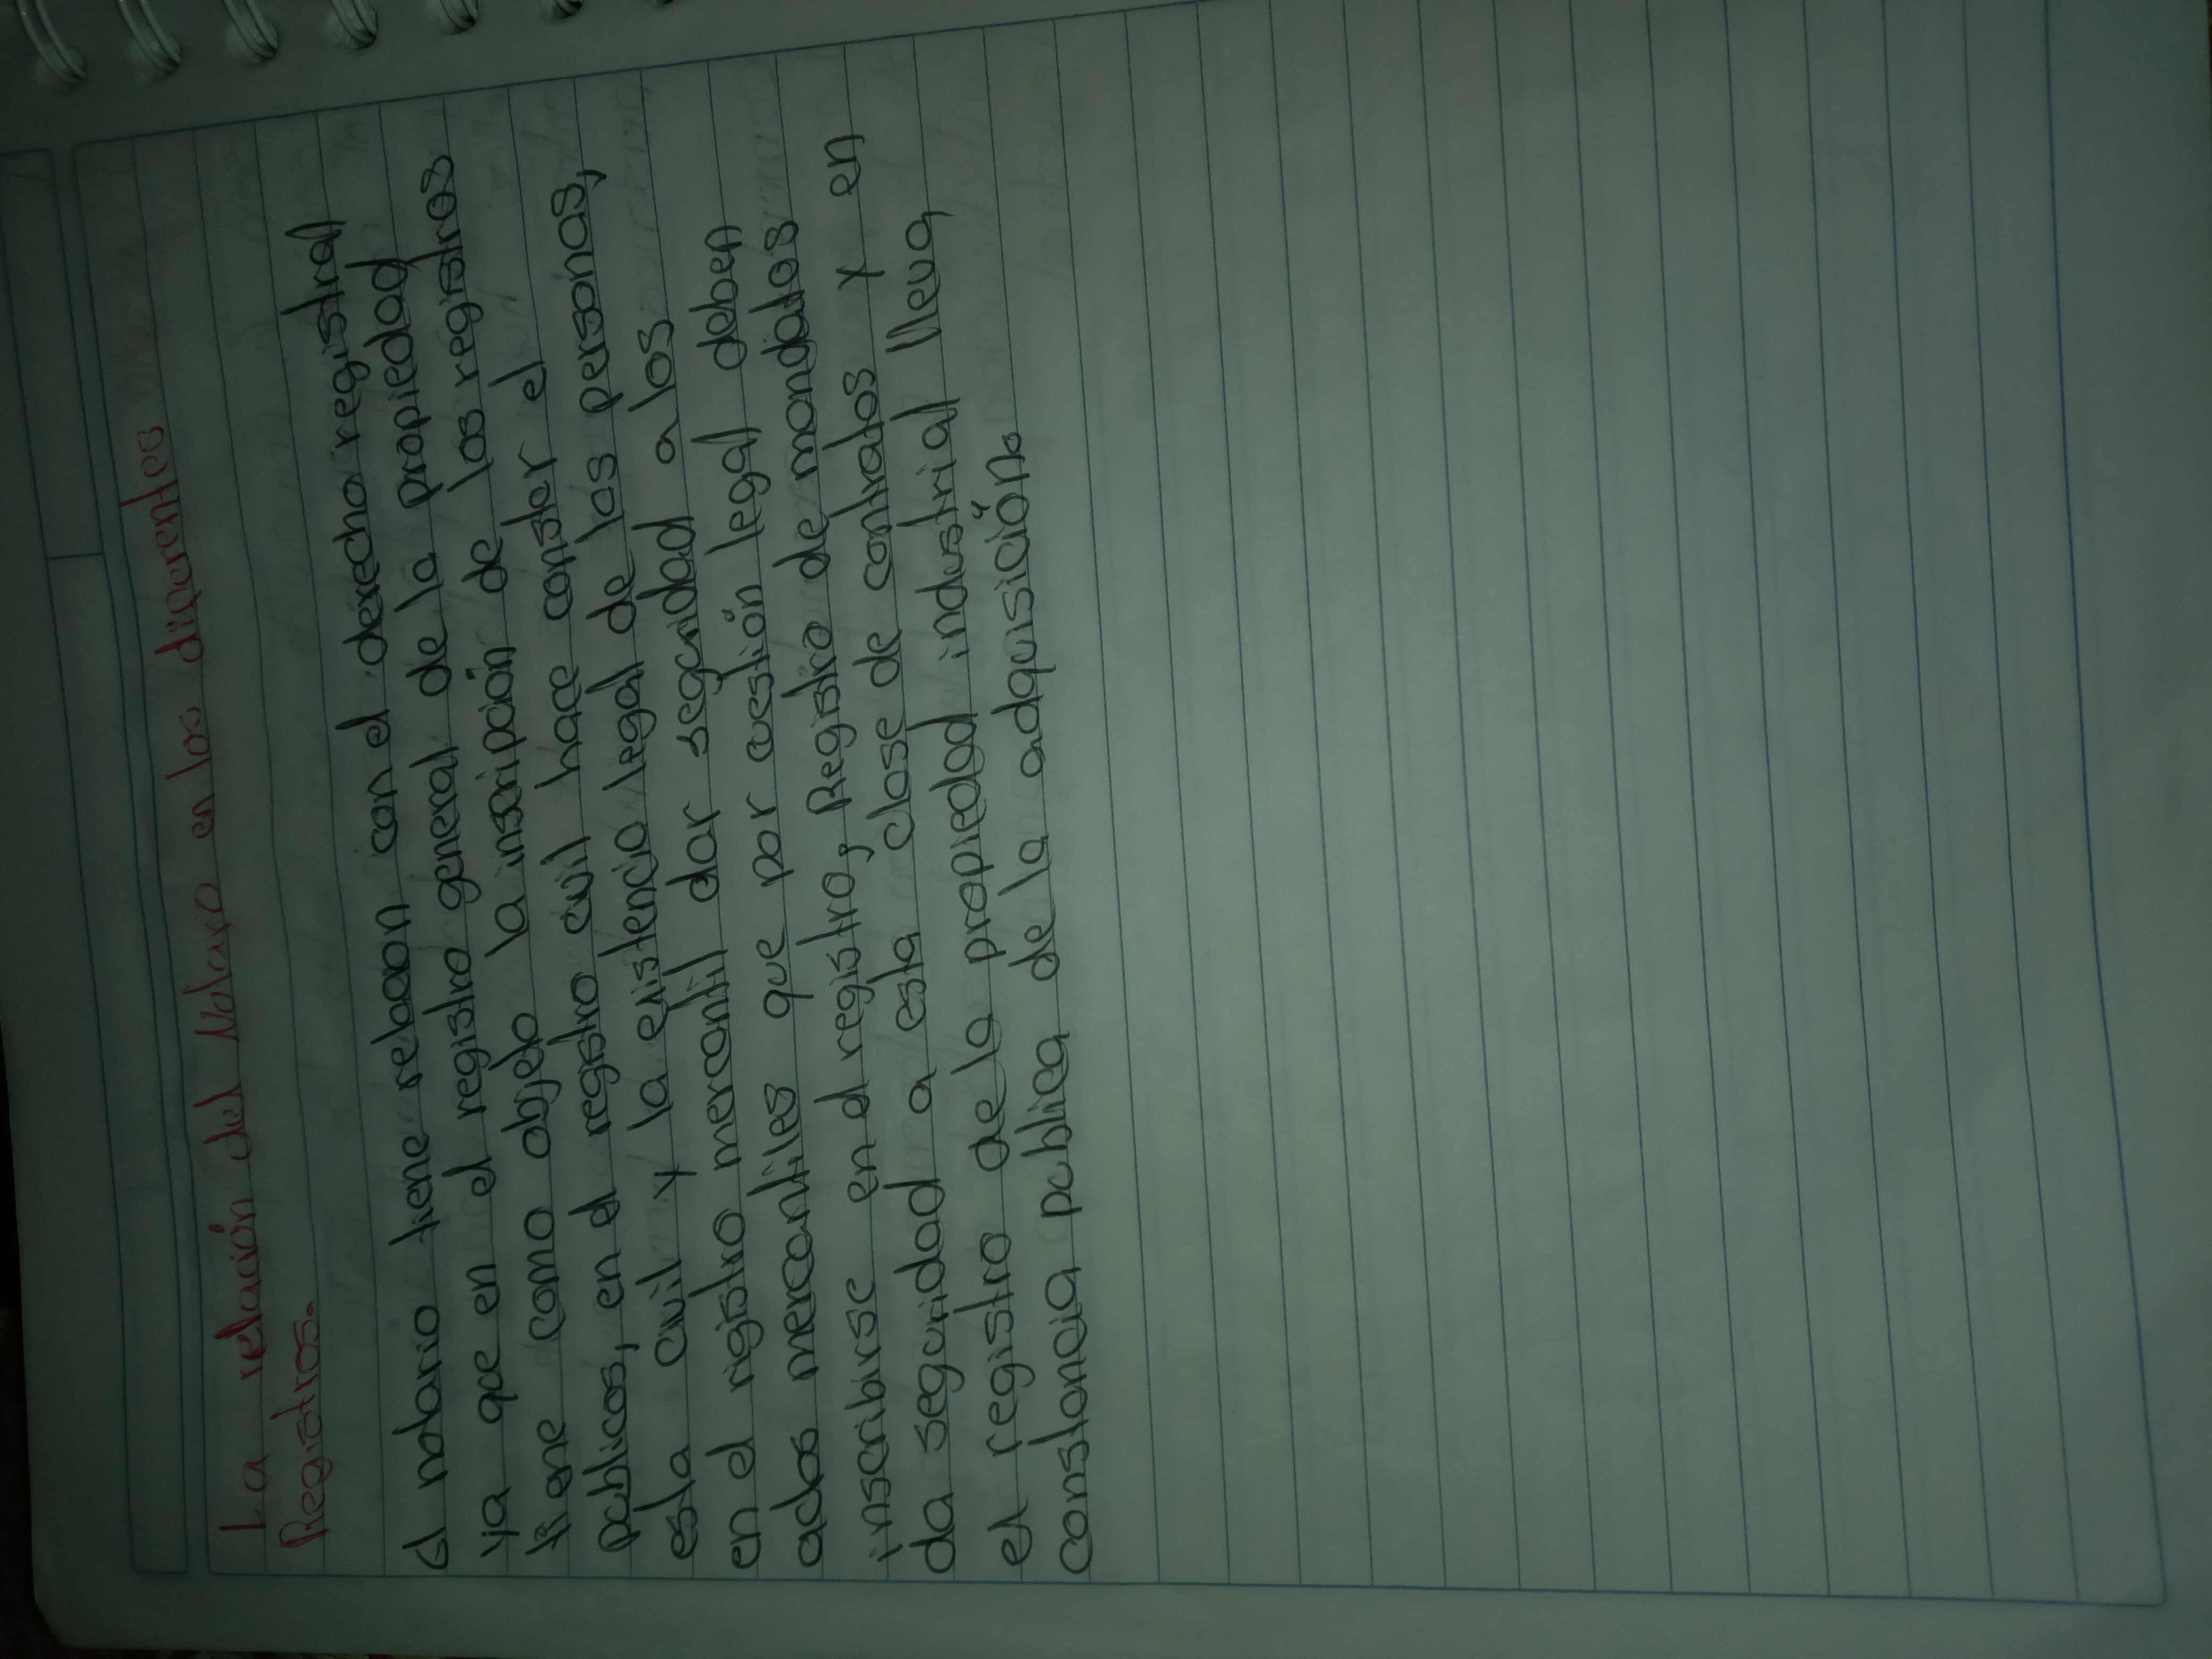 La relación del Notario en los diferentes
Registros.
El notario tiene relacion con el derecho registral
ya que en el registro general de la propiedad
tiene como objeto la inscripción de los registros
publicos, en el registro civil hace conster el
esta civil y la existencia legal de las personas,
en el registro mercantil dar seguridad a los
actos mercantiles que por cuestión legal deben
inscribirse en el registro, Registro de mandatos
da seguridad a esta clase de contratos y en
el registro de la propiedad industrial lleva
constancia publica de la adquisición.